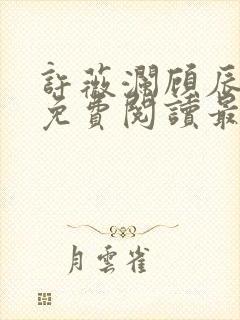 許薇瀾顧辰
免費閱讀最
月雲雀